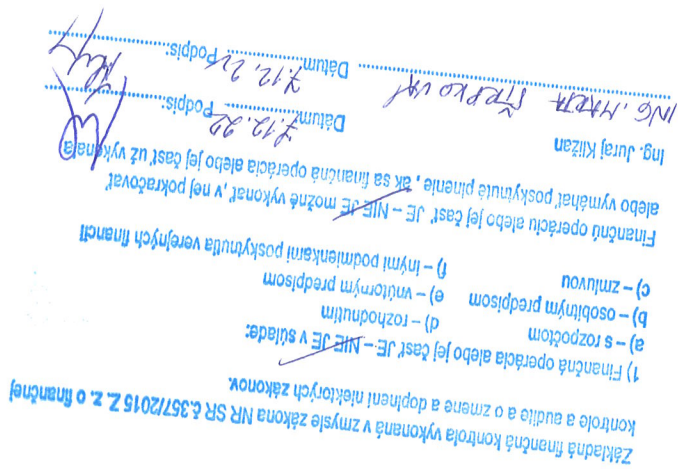 Základná finančná kontrola vykonaná v zmysle zákona NR SR č.357/2015 Z. z. o finančnej
kontrole a audite a o zmene a doplnení niektorých zákonov.
1) Finančná operácia alebo jej časť JE – NIE JE v súlade:
a) – s rozpočtom d) – rozhodnutím
b) – osobitným predpisom e) – vnútorným predpisom
c) – zmluvou f) – inými podmienkami poskytnutia verejných financií
Finančnú operáciu alebo jej časť JE – NIE JE možné vykonať, v nej pokračovať
alebo vymáhať poskytnuté plnenie, ak sa finančná operácia alebo jej časť už vykonala
Ing. Juraj Kližan Dátum: 7.12.22 Podpis:
ING. MARTA Dátum: 7.12.22 Podpis: